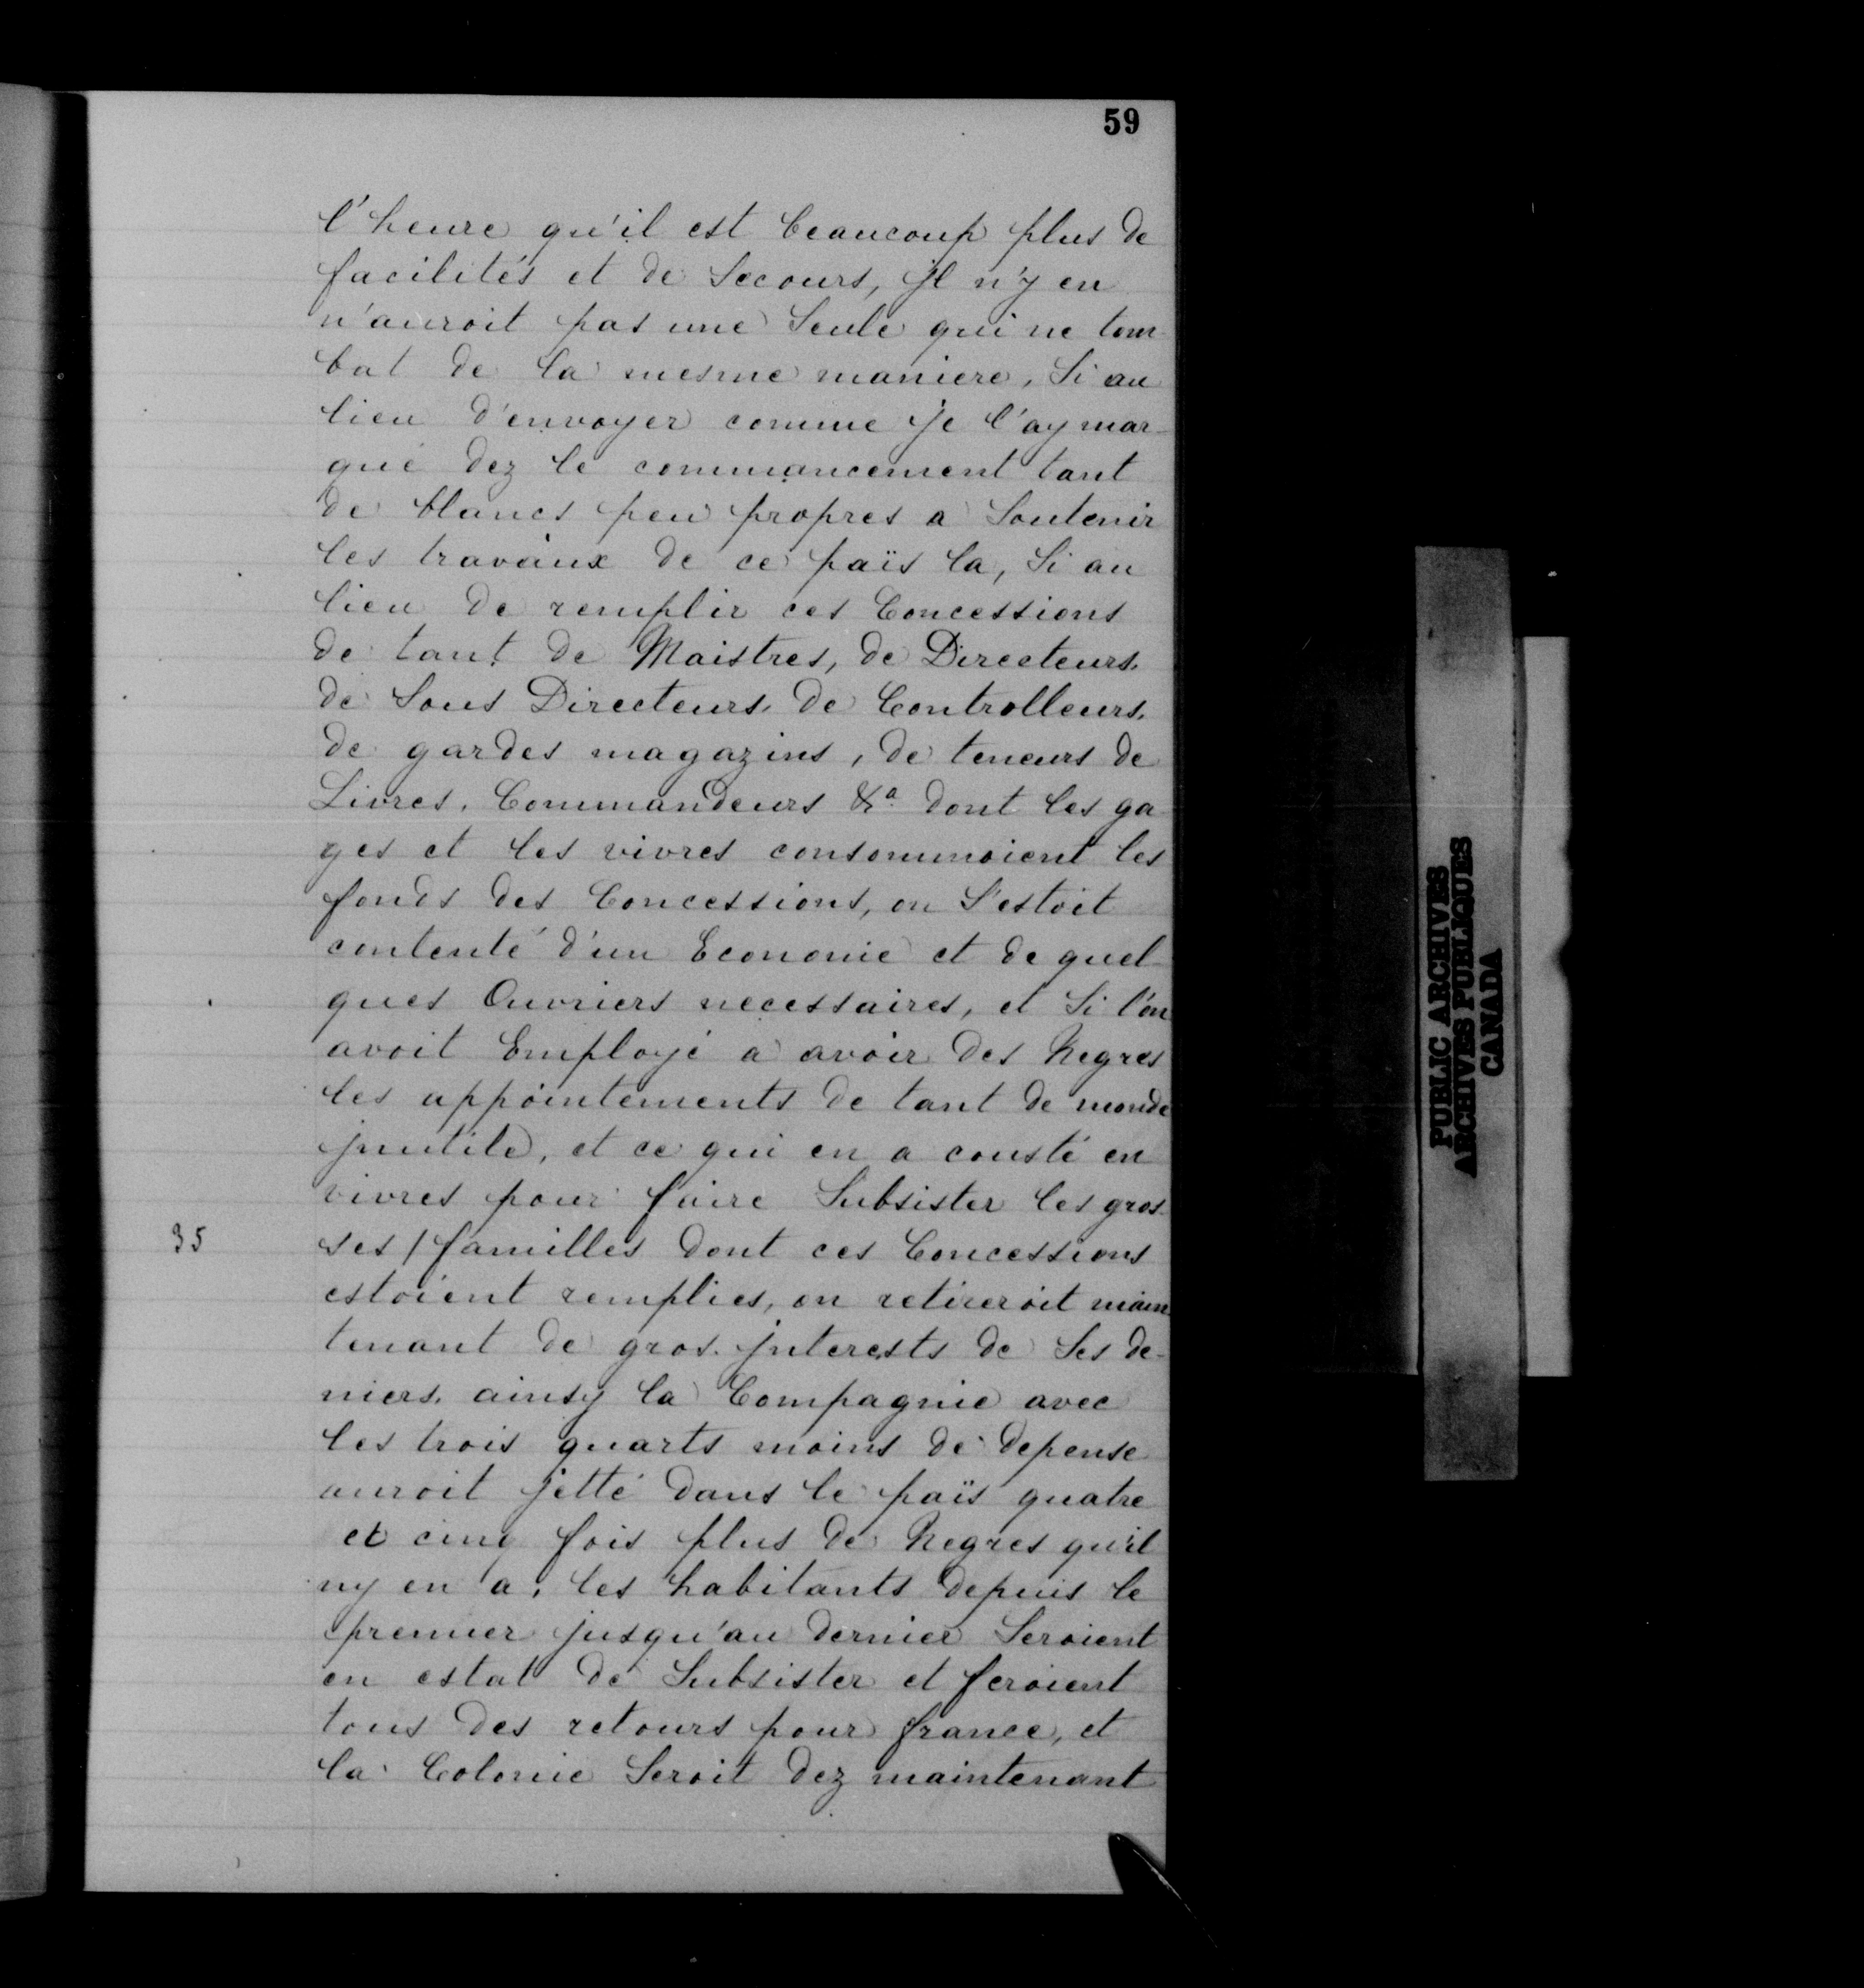 59
l'heure qu'il est beaucoup plus de
facilités et de Secours, jl n'y en
n'auroit pas une Seule qui ne tom-
bat de la mesme maniere, Si au
lieu d'envoyer comme je l'ay mar-
qué dez le commancement tant
de blancs peu propres a Soutenir
les travaux de ce païs la, Si au
lieu de remplir ces Concessions
de tant de Maistres, de Directeurs,
de Sous Directeurs, de Controlleurs,
de gardes magazins, de teneurs de
Livres, Commandeurs &a dont les ga
ges et les vivres consommoient les
fonds des Concessions, on S'estoit
contenté d'un Econonie et de quel-
ques Ouvriers necessaires, et Si l'on
avoit Employé a avoir des Negres
les appointements de tant de monde
jnutile, et ce qui en a cousté en
vivres pour faire Subsister les gros-
35 ses / familles dont ces Concessions
estoient remplies, on retireroit main-
tenant de gros jnterests de Ses de-
niers, ainsy la Compagnie avec
les trois quarts moins de depense
auroit jetté dans le païs quatre
et cinq fois plus de Negres qu'il
ny en a, les habitants depuis le
premier jusqu'au dernier Seroient
en estat de Subsister et feroient
tous des retours pour france, et
la Colonie Seroit dez maintenant
PUBLIC ARCHIVES
ARCHIVES PUBLIQUES
CANADA